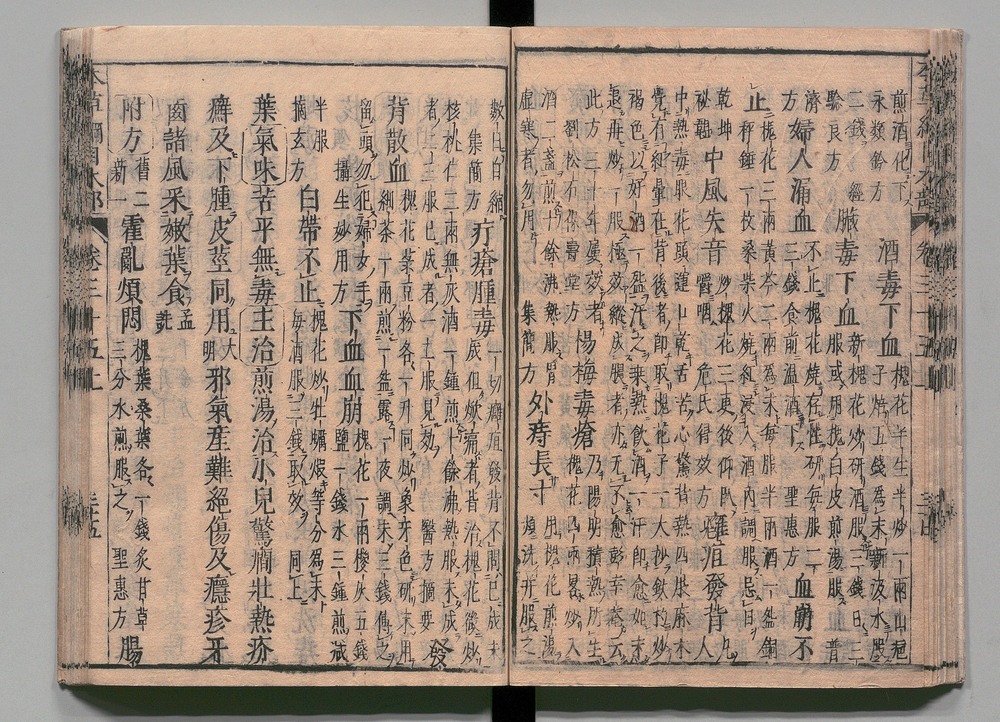 煎酒化下
永類鈐方
酒毒下血
槐花半生半炒一兩山梔
子焙五錢為末新汲水服
二錢 經
驗良方
臟毒下血
新槐花炒研酒服三錢日三
服或用槐花煎湯服 普
濟
方
婦人漏血
不止槐花燒存性研每服二
三錢食前溫酒下 聖惠方
血崩不
止
槐花三兩黃芩二兩為末每服半兩酒一盌銅
秤錘一枚桑柴火燒紅浸入酒內調服忌口
乾坤
祕韞
中風失音
炒槐花三更後仰臥
嚼咽 危氏得效方
癰疽發背
凡人
中熱毒眼花頭運口乾舌苦心驚背熱四肢麻木
覺有紅暈在背後者即取槐花子一大抄鐵杓炒
褐色以好酒一盌汗之乘熱飲酒一汗即愈如未
退再炒一服極效縱成膿者亦無不愈彭幸菴云
此方三十年屢效者
劉松石保壽堂方
楊梅毒瘡
乃陽明積熱所生
槐花四兩畧炒入
酒二盞煎十餘沸熱服胃
虛寒者勿用 集簡方
外痔長寸
用槐花煎湯
頻洗并服之
數日自縮
集簡方
疔瘡腫毒
一切癰疽發背不問已成未
成但焮痛者皆治槐花微炒
核桃仁二兩無灰酒一鍾煎十餘沸熱服未成
者二三服已成者一二服見效 醫方摘要
發
背散血
槐花菉豆粉各一升同炒象牙色研末用
細茶一兩煎一盌露一夜調末三錢傅之
留頭勿犯婦女手
攝生妙用方
下血血崩
槐花一兩椶灰五錢
鹽一錢水三鍾煎減
半服
摘玄方
白帶不止
槐花炒牡蠣煅等分為末
每酒服三錢取效 同上
葉氣味苦平無毒主治煎湯治小兒驚癇壯熱疥
癬及下腫皮莖同用大明邪氣產難絕傷及癮疹牙
齒諸風采嫩葉食孟詵
附方舊二新一霍亂煩悶
槐葉桑葉各一錢炙甘草
三分水煎服之 聖惠方
腸
本草綱目木部 卷三十五上 三十五